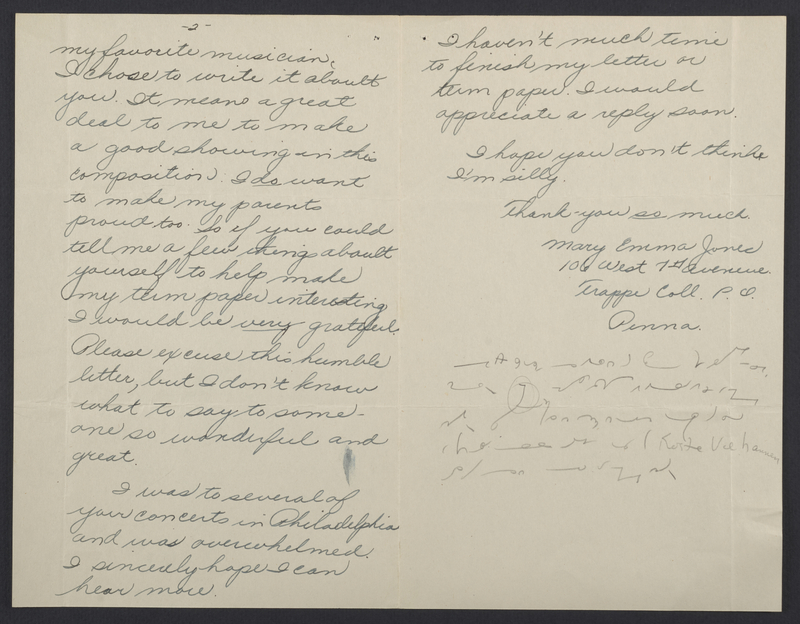 -2-
my favorite musician.
I chose to write it aboult
you. It means a great
deal to me to make
a good showing in this
composition. I do want
to make my parents
proud too. So if you could
tell me a few things aboult
yourself to help make
my term paper interesting
I would be very grateful.
Please excuse this humble
letter, but I don't know
what to say to some-
one so wonderful and
great.
I was to several of
your concerts in Philadelphia
and was overwhelmed.
I sincerly hope I can
hear more.
I haven't much time
to finish my letter or
term paper. I would
appreciate a reply soon.
I hope you don't think
I'm silly.
Thank-you so much.
Mary Emma Jones
106 West 7th avenue.
Trappe Coll. P.O.
Penna.